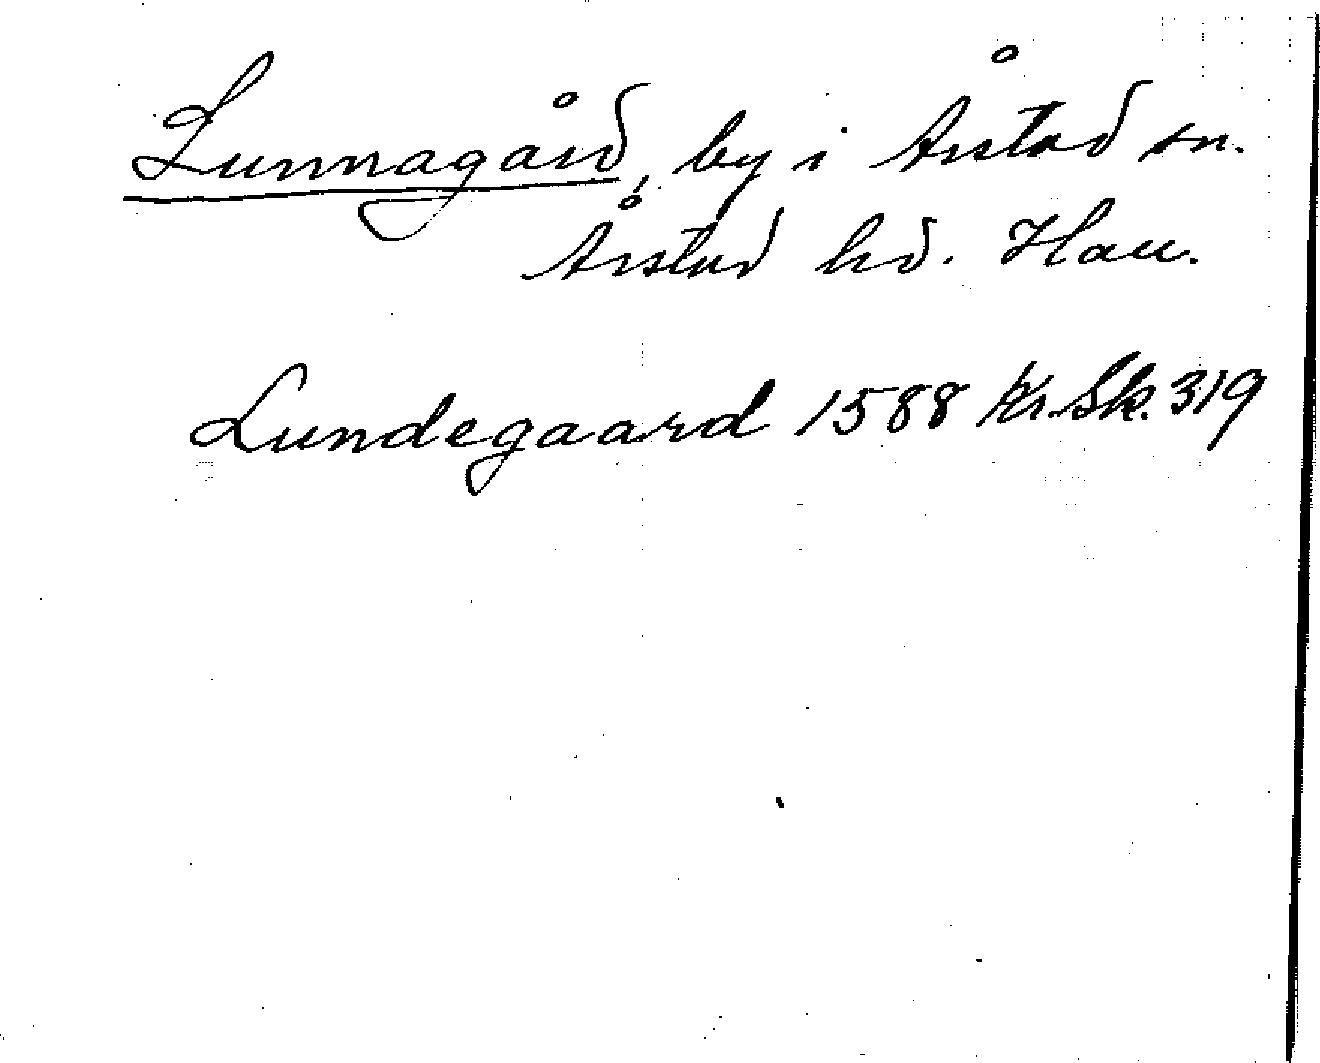 Lunnagård, by i Årstad sn.
Årstad hd. Hall.
Lundegaard 1588 Kr.Sk. 319